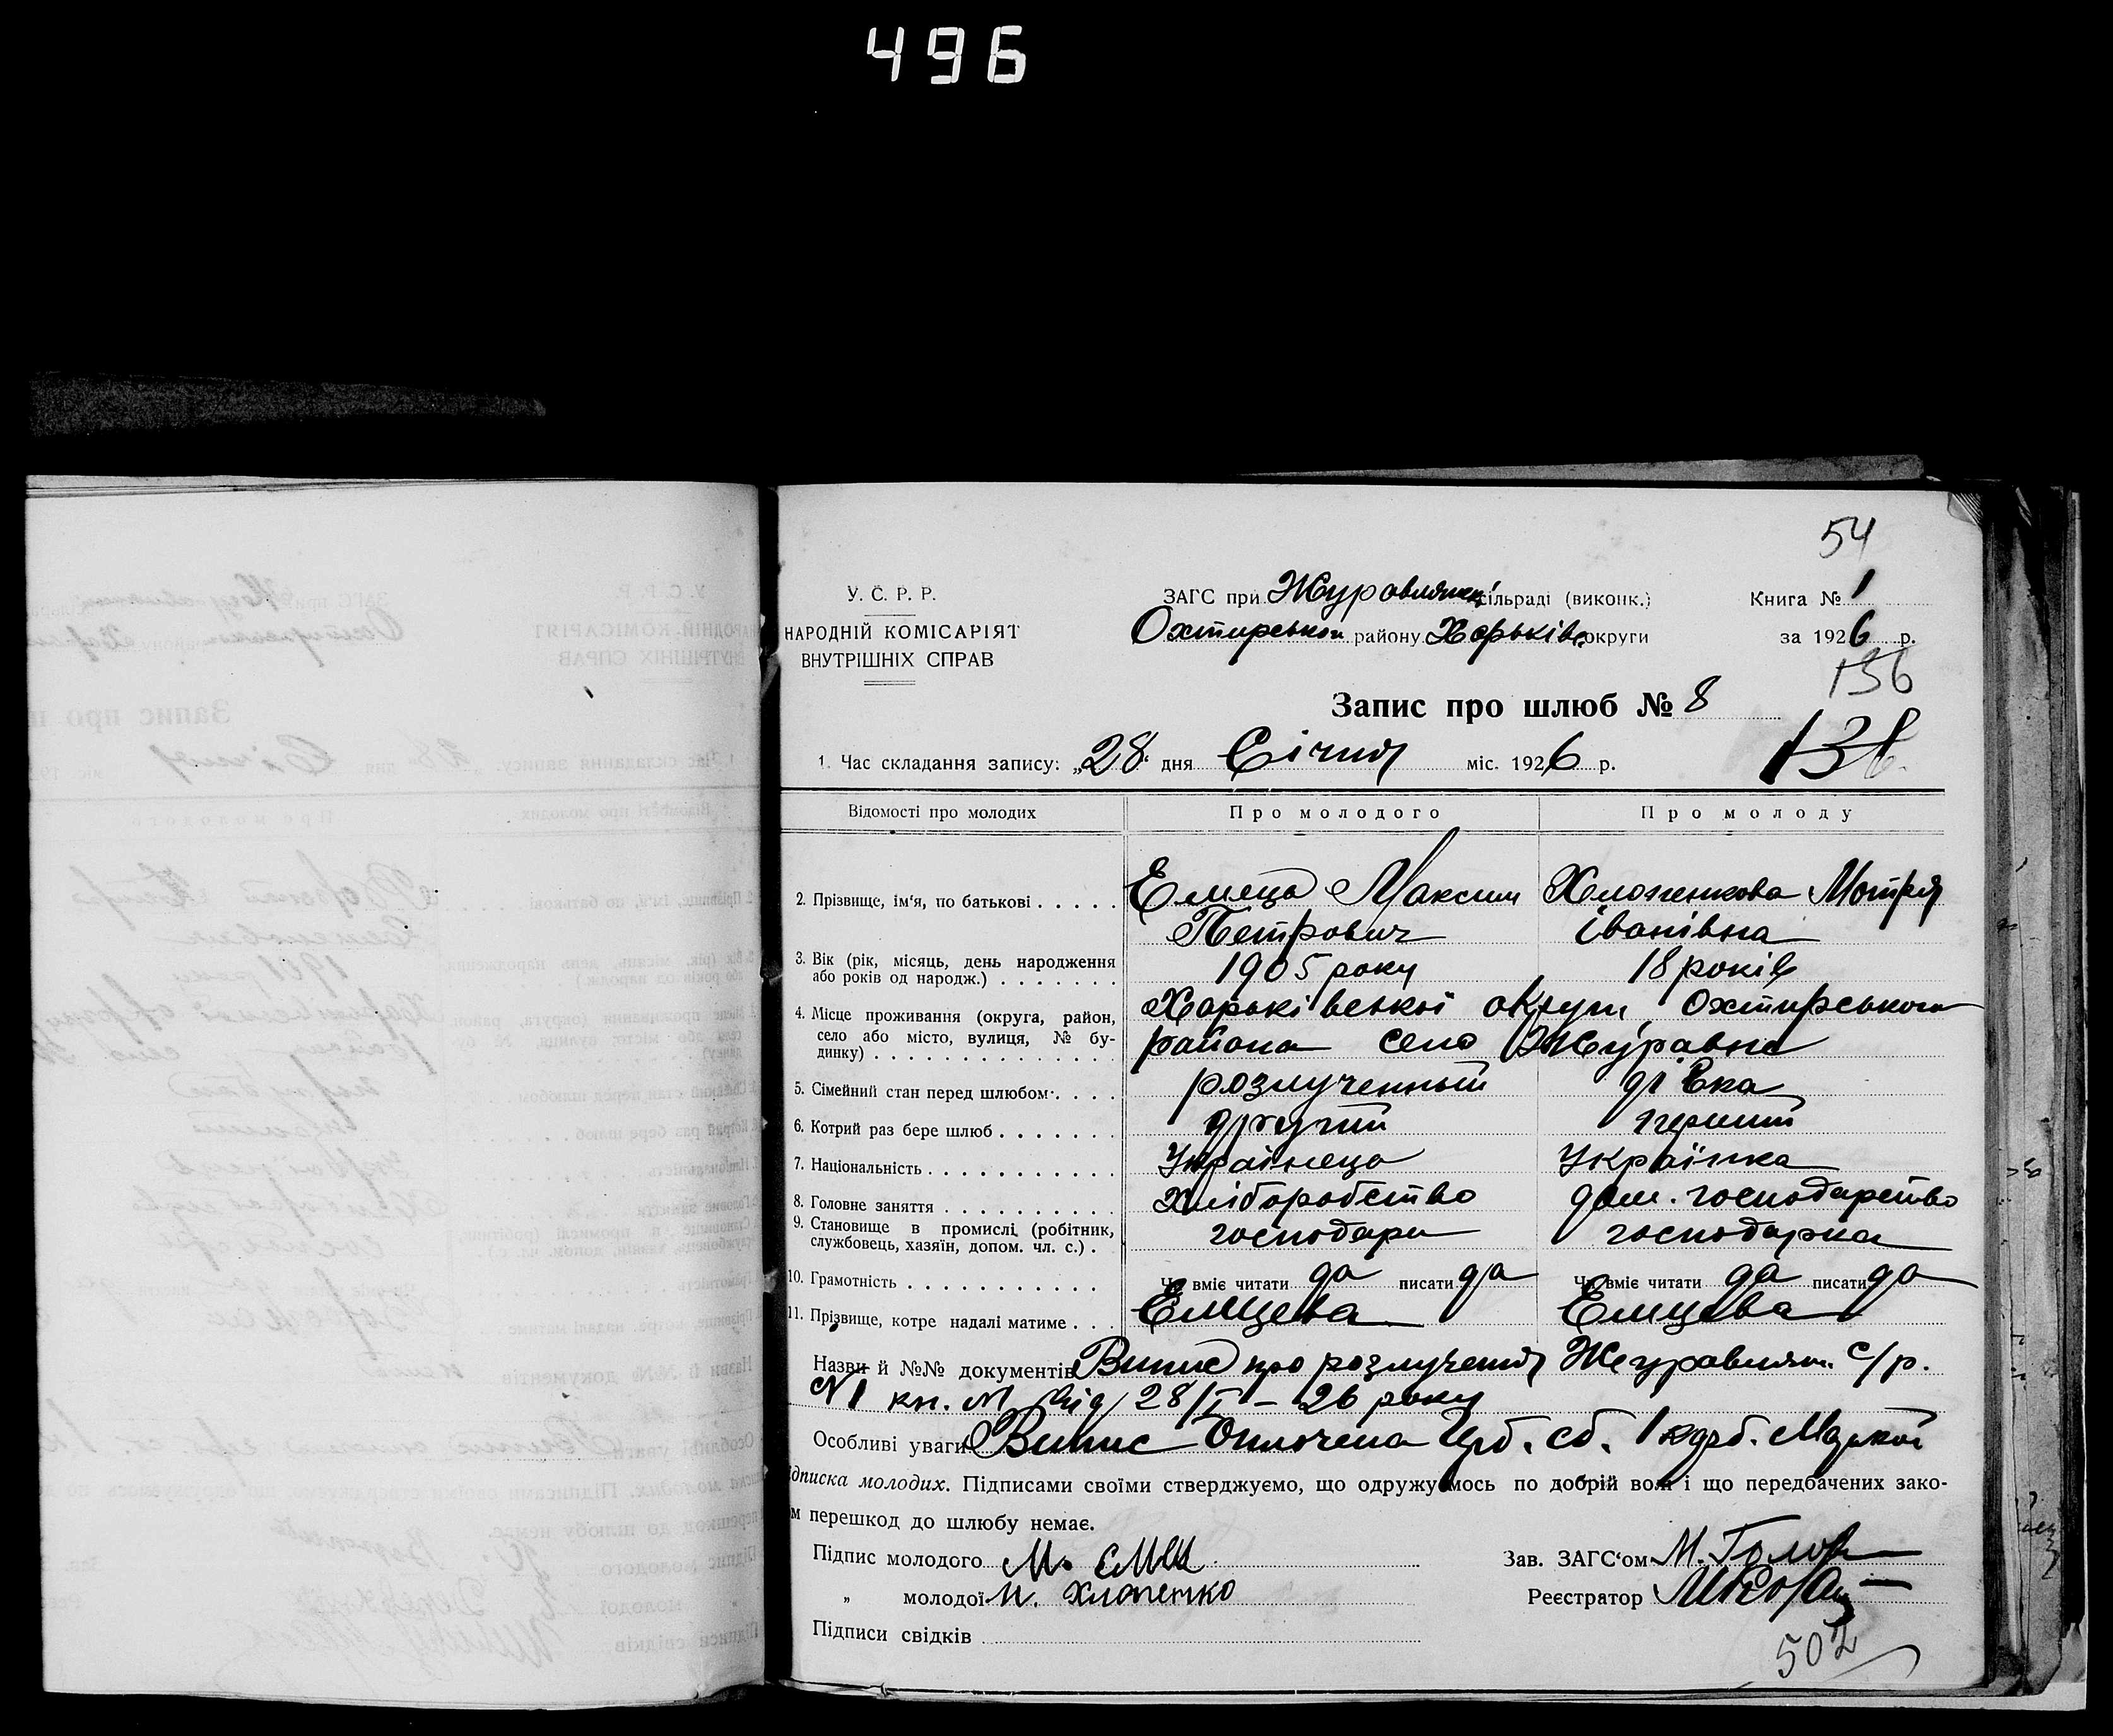 496
54
У. С. Р. Р.
НАРОДНІЙ КОМІСАРІЯТ
ВНУТРІШНІХ СПРАВ
ЗАГС при Журавлянск. сільраді (виконк.)
Охтирського району Харьківс. округи
Книга № 1
за 1926 р.
136
Запис про шлюб № 8
136
1. Час складання запису: „28" дня Січня міс. 1926 р.
Відомості про молодих Про молодого Про молоду
2. Прізвище, ім'я, по батькові Емець Максим Хлопенкова Мотря
Петрович іванівна
3. Вік (рік, місяць, день народження
або років од народж.) 1905 року 18 років
4. Місце проживання (округа, район, Харьківської округи Охтирського
село або місто, вулиця, № бу- района село Журавне
динку)
5. Сімейний стан перед шлюбом розлученный дівка
6. Котрий раз бере шлюб другий перший
7. Національність Українець Українка
8. Головне заняття Хліборобство дом. господарство
9. Становище в промислі (робітник,
службовець, хазяїн, допом. чл. с.) господарь господарка
10. Грамотність Чи вміє читати да писати да Чи вміє читати да писати да
11. Прізвище, котре надалі матиме Емцева Емцева
Назви й №№ документів Випис про розлучення Журавлян. с/р.
№1 кн. від 28/I – 26 року
Особливі уваги Випис Оплочена Грб. сб. 1
Підписка молодих. Підписами своїми стверджуємо, що одружуємось по добрій волі і що передбачених зако-
м перешкод до шлюбу немає.
Підпис молодого М. ємец Зав. ЗАГС'ом М.
„ молодої М. Хлопенко Реєстратор
Підписи свідків
502